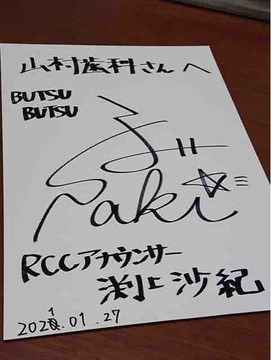 山村歯科さんへ
BUTSU
BUTSU
Saki
RCCアナウンサー
渕上沙紀
2021.01.27